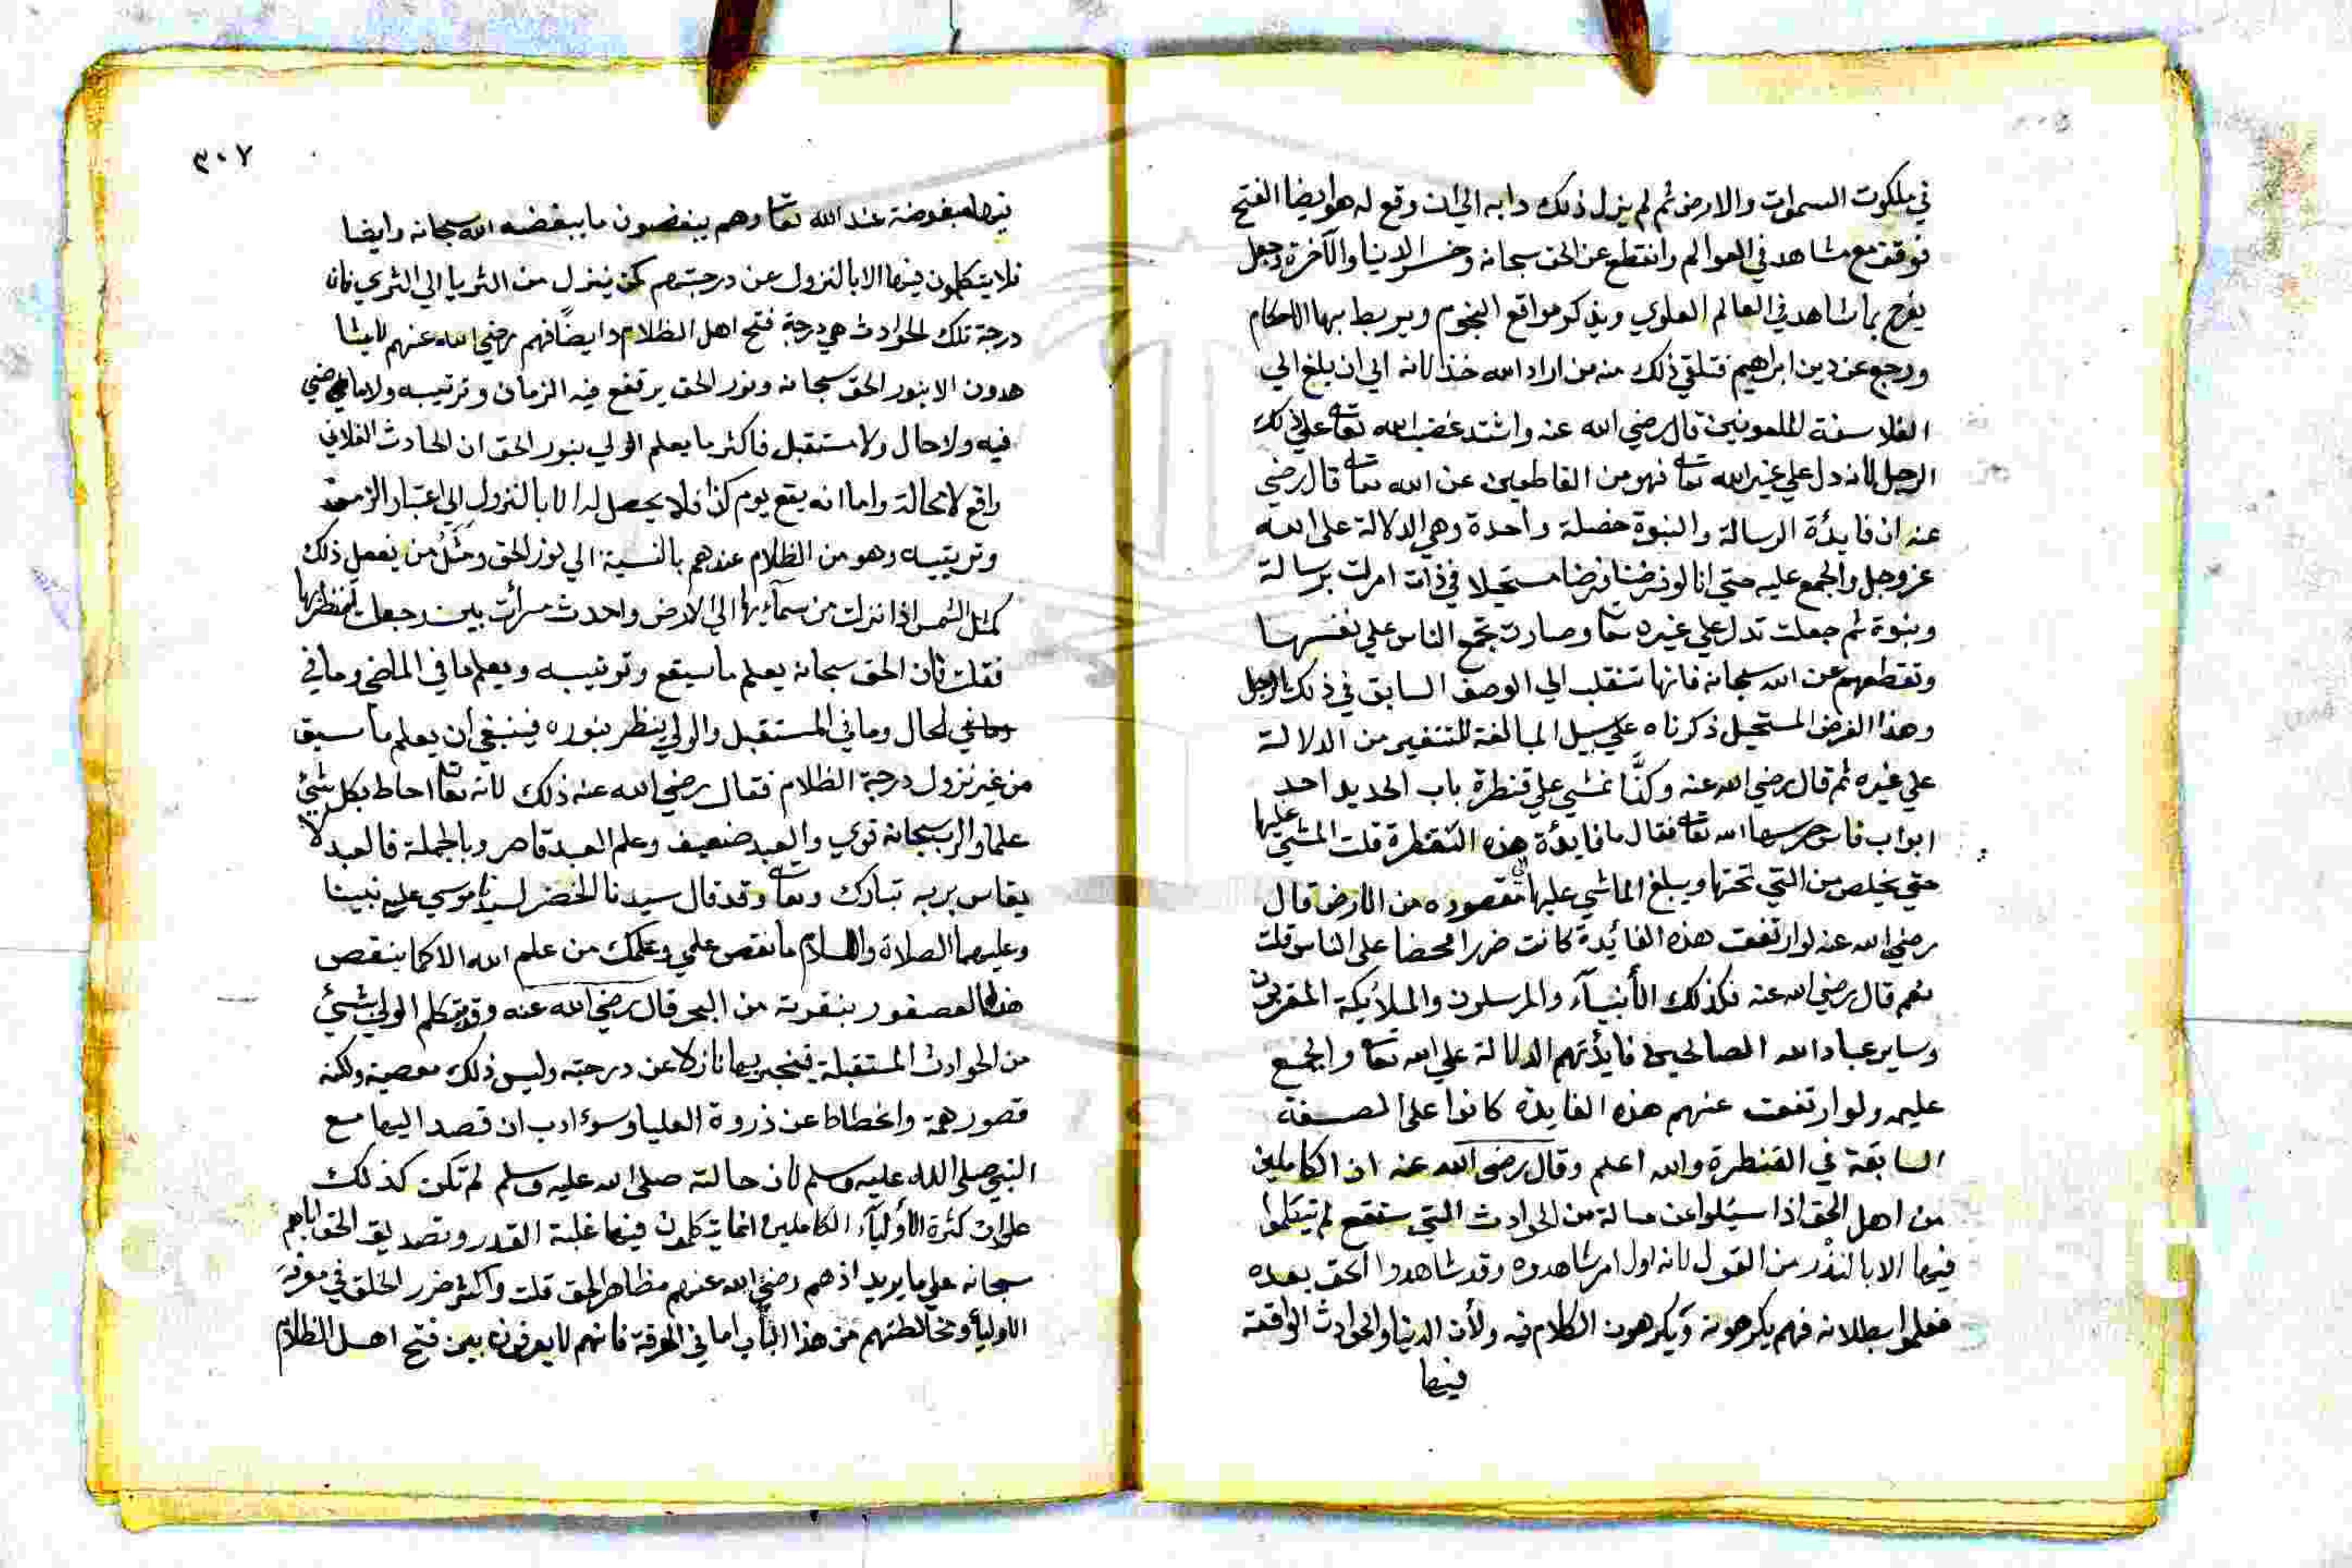 في ملكوت السموات والارض ثم لم يزل ذلك دابه الي ان وقع له هو ايضا الفتح
فوقف مع مشاهد في العوالم وانقطع عن الحق سبحانه وخسر الدنيا والآخرة وجعل
يفرح بما شاهد في العالم العلوي ويذكر مواقع النجوم ويربط بها الاحكام
ورجع عن دين ابراهيم فتلقي ذلك منه من اراد الله خذلانه الي ان بلغ الي
الفلاسفة الملعونين قال رضي الله عنه واشتد غضب الله تعا علي ذلك
الرجل لانه دل علي غير الله تعا فهو من القاطعين عن الله تعا قال رضي
عنه ان فايدة الرسالة والنبوة خصلة واحدة وهي الدلالة على الله
عز وجل والجمع عليه حتي انا لو فرضنا فرضا مستحيلا في ذات امرت برسالة
ونبوة ثم جعلت تدل علي غيره تعا وصارت تجمع الناس علي نفسها
وتقطعهم عن الله سبحانه فانها تنقلب الي الوصف السابق في ذلك الرجل
وهذا الفرض المستحيل ذكرناه علي سبيل المبالغة للتنفير من الدلالة
علي غيره ثم قال رضي الله عنه وكنَّا نمشي علي قنطرة باب الحديد احد
ابواب فاس حرسها الله تعا فقال ما فايدة هذه القنطرة قلت المشي عليها
حتي يخلص من التي تحتها ويبلغ الماشي عليها الي مقصوده من الارض قال
رضي الله عنه لو ارتفعت هذه الفائدة كانت ضررا محضا على الناس قلت
نعم قال رضي الله عنه فكذلك الأنبيآء والمرسلون والملائكة المقربون
وساير عباد الله الصالحين فايدتهم الدلالة علي الله تعا والجمع
عليه ولو ارتفعت عنهم هذه الفايدة كانوا على الصفة
السابقة في القنطرة والله اعلم وقال رضي الله عنه ان الكاملين
من اهل الحق اذا سئلوا عن مسالة من الحوادث التي ستقع لم يتكلموا
فيها الا بالنذْر من القول لانه اول امر شاهدوه وقد شاهدوا الحق بعده
فعلموا بطلانه فهم يكرهونه ويكرهون الكلام فيه ولأن الدنيا والحوادث الواقعة
فيها
٣٠٧
فيها مبغوضة عند الله تعا وهم يبغضون ما يبغضه الله سبحانه وايضا
فلا يتكلمون فيها الا بالنزول عن درجتهم كمن ينزل من الثريا الي الثري فان
درجة تلك الحوادث هي درجة فتح اهل الظلام وايضاً فهم رضي الله عنهم لا يشا
هدون الا بنور الحق سبحانه ونور الحق يرتفع فيه الزمان وترتيبه ولا ماضي
فيه ولا حال ولا مستقبل فاكثر ما يعلم الولي بنور الحق ان الحادث الفلاني
واقع لا محالة واما انه يقع يوم كذا فلا يحصل له الا بالنزول الي اعتبار الزمن
وترتيبه وهو من الظلام عندهم بالنسبة الي نور الحق ومثَلُ من يفعل ذلك
كمثل الشمس اذا نزلت من سمآئها الي الارض واحدث مرأت بين وجعلت تنظر بها
فقلت فان الحق سبحانه يعلم ما سيقع وترتيبه ويعلم ما في الماضي وما في
الحال وما في المستقبل والولي ينظر بنوره فينبغي ان يعلم ما سبق
من غير نزول درجة الظلام فقال رضي الله عنه ذلك لانه تعا احاط بكل شئ
علما والرب سبحانه قوي والعبد ضعيف وعلم العبد قاصر وبالجملة فالعبد لا
يقاس بربه تبارك وتعا وقد قال سيدنا الخضر لسيدنا موسي علي نبينا
وعليهما الصلاة والسلام ما نقص علمي وعلمك من علم الله الا كما ينقص
هذا العصفور بنقرته من البحر قال رضي الله عنه وقد يتكلم الولي بشئ
من الحوادث المستقبلة فيخبر بها نازلا عن درجته وليس ذلك معصية ولكنه
قصور همة وانحطاط عن ذروة العليا وسوء ادب ان قصد اليها مع
النبي صلى الله عليه وسلم لان حالته صلى الله عليه وسلم لم تكن كذلك
على ان كثرة الأوليآء الكاملين انما يتكلمون فيها غلبة القدر وتصديق الحق اياهم
سبحانه علي ما يريد اذ هم رضي الله عنهم مظاهر الحق قلت واكثر ضرر الخلق في معرفة
الاوليآ ومخالطتهم من هذا الباب اما في المعرفة فانهم لا يعرفون بين فتح اهل الظلام